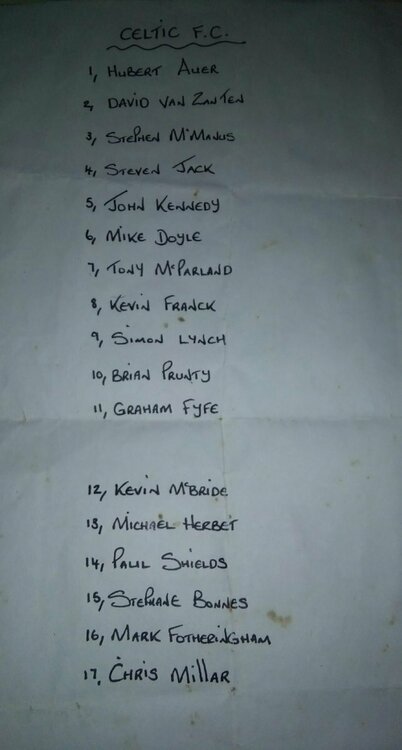 CELTIC F.C.
1, HUBERT AUER
2, DAVID VAN ZANTEN
3, STEPHEN McMANUS
4, STEVEN JACK
5, JOHN KENNEDY
6, MIKE DOYLE
7, TONY McPARLAND
8, KEVIN FRANCK
9, SIMON LYNCH
10, BRIAN PRUNTY
11, GRAHAM FYFE
12, KEVIN McBRIDE
13, MICHAEL HERBET
14, PAUL SHIELDS
15, STEPHANE BONNES
16, MARK FOTHERINGHAM
17, CHRIS MILLAR